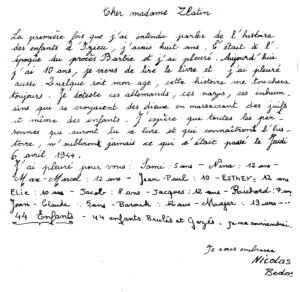 Cher madame Zlatin
La première fois que j'ai entendu parler de l'histoire
des enfants d'Izieu, j'avais huit ans. C'était à l'
époque du procès Barbie et j'ai pleuré. Aujourd'hui
j'ai 10 ans, je viens de lire le livre et j'ai pleuré
aussi. Quelque soit mon age, cette histoire me touchera
toujours. Je déteste ces allemands, ces nazis, ces inhum.
ains qui se croyaient des dieux en massacrant des juifs
et même des enfants. J'espère que toutes les per-
sonnes qui auront lu ce livre et qui connaîtront l'his
toire, n'oublieront jamais ce qui s'était passé le Jeudi
6 avril 1944.
J'ai pleuré pour vous : Sami : 5 ans - Nina : 12 ans -
Max-Marcel : 12 ans - Jean-Paul : 10 - ESTHER : 12 ans
Elie : 10 ans - Jacob : 8 ans - Jacques : 12 ans - Richard : 7 ans
Jean-Claude : 5 ans - Barouk : 12 ans - 13 ans
44 Enfants - 44 enfants Brulés et Gazés. je me souviendrai.
Je vous embrasse
Nicolas
Bedos